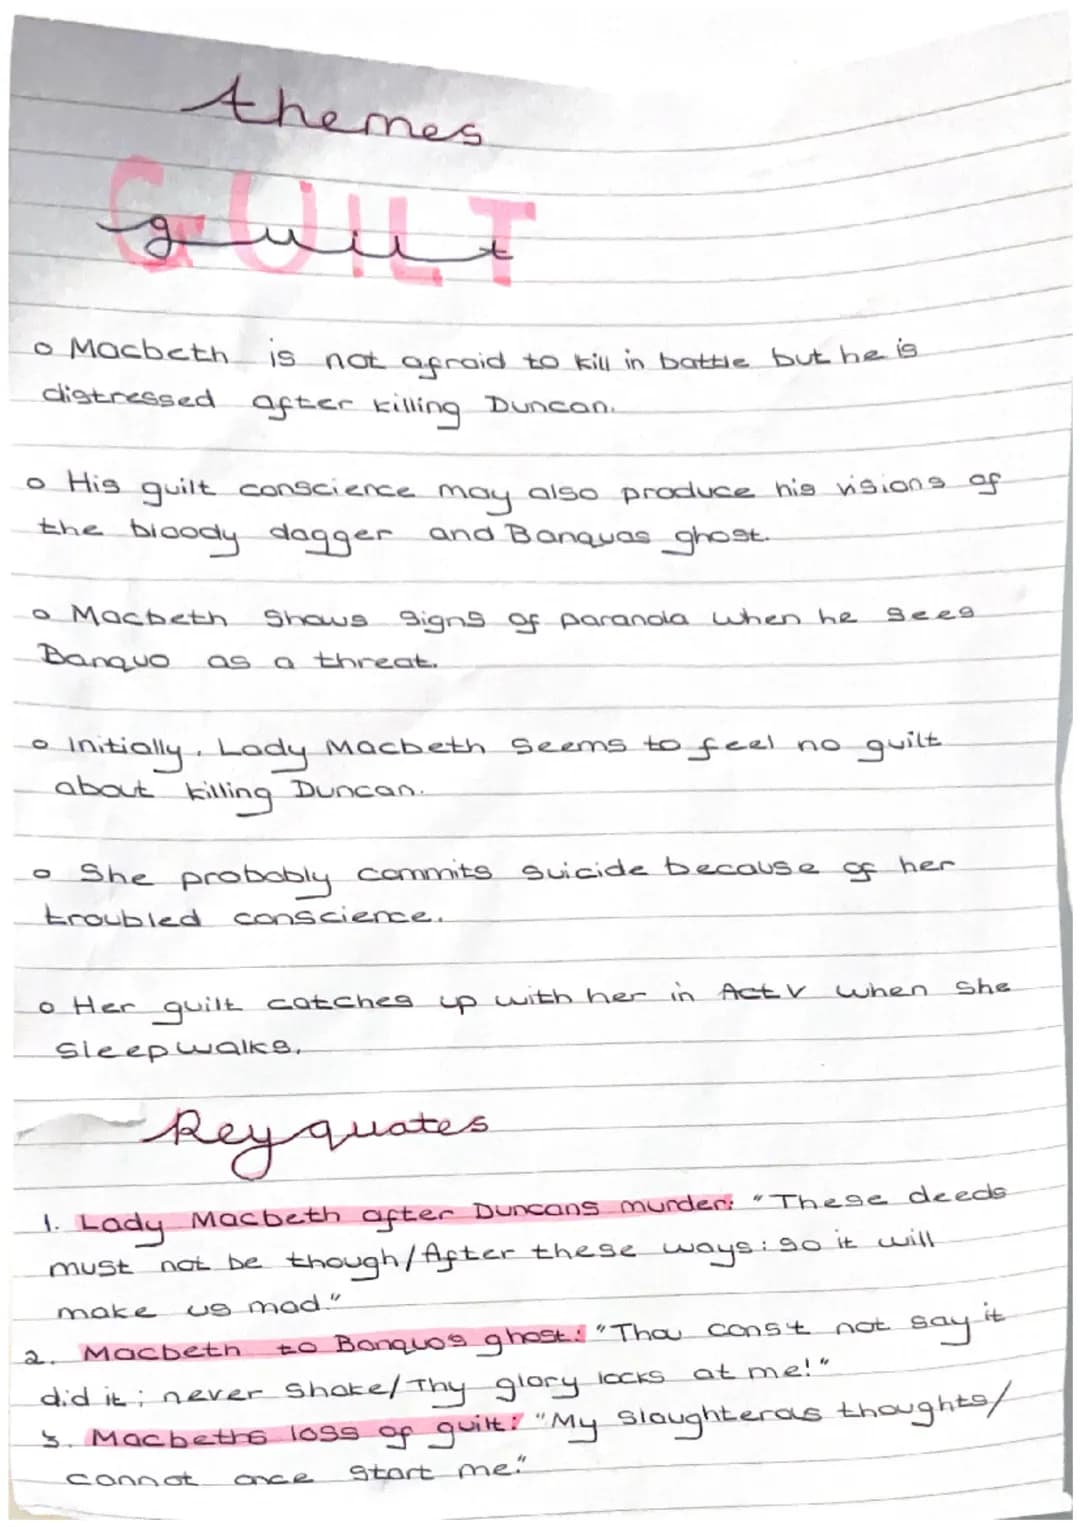 themes
GUILT
guilt
o Macbeth is not afraid to kill in battle but he is
distressed after killing Duncan.
o His guilt conscience may also produce his visions of
the bloody dagger and Banquas ghost.
o Macbeth shows signs of paranoia when he sees
Banquo as a threat.
o Initially, Lady Macbeth seems to feel no guilt
about killing Duncan.
o She probably commits suicide because of her
troubled conscience.
o Her guilt catches up with her in Act V when she
sleepwalks.
Key quotes
1. Lady Macbeth after Duncans murder: "These deeds
must not be though/After these ways: so it will
make us mad."
2. Macbeth to Banquos ghost: "Thou canst not say it
did it; never shake/Thy glory locks at me!"
3. Macbeths loss of guilt: "My slaughterous thoughts/
cannot once start me."